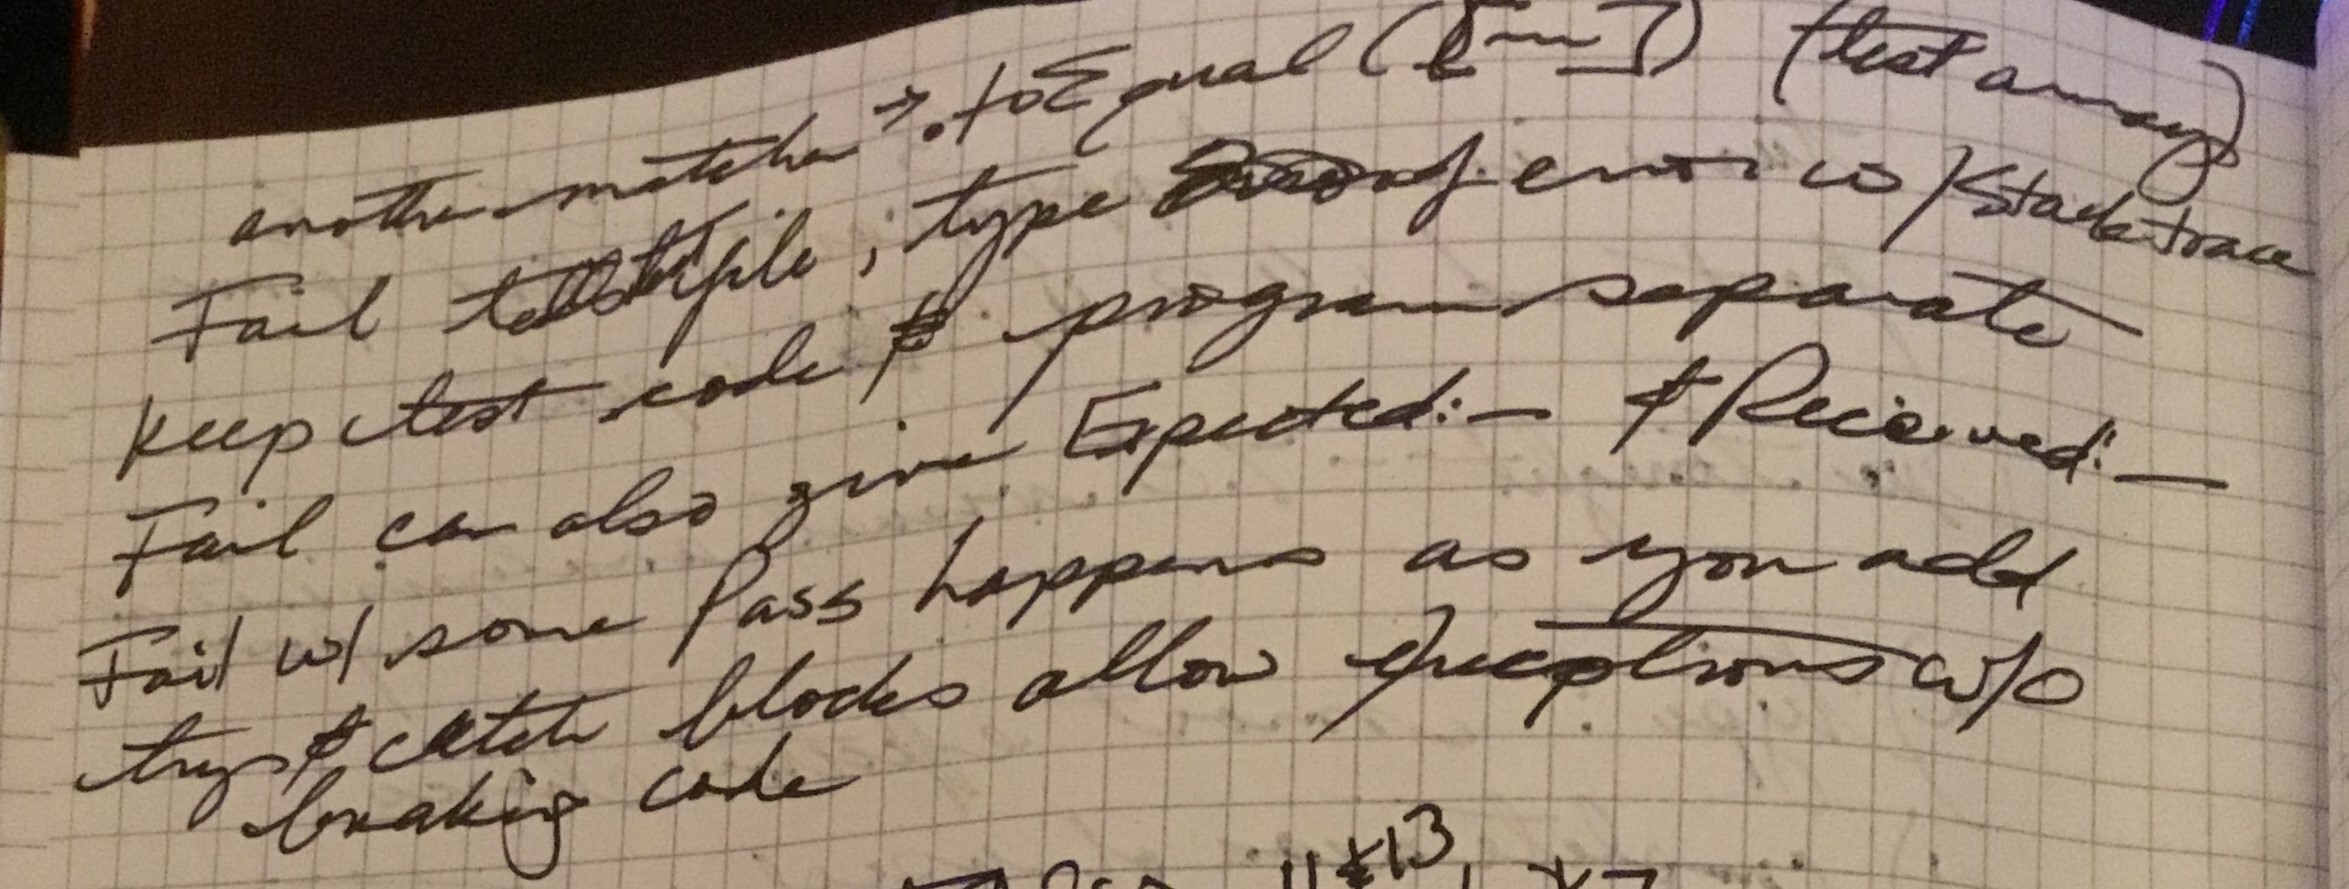 another matcher → .toEqual ([~~]) (test array)
Fail tells file, type of error w/ Stack trace
keep test code & program separate
Fail can also give Expected: — & Received: —
Fail w/ some Pass happens as you add
try & catch blocks allow exceptions w/o
breaking code
11 & 13,